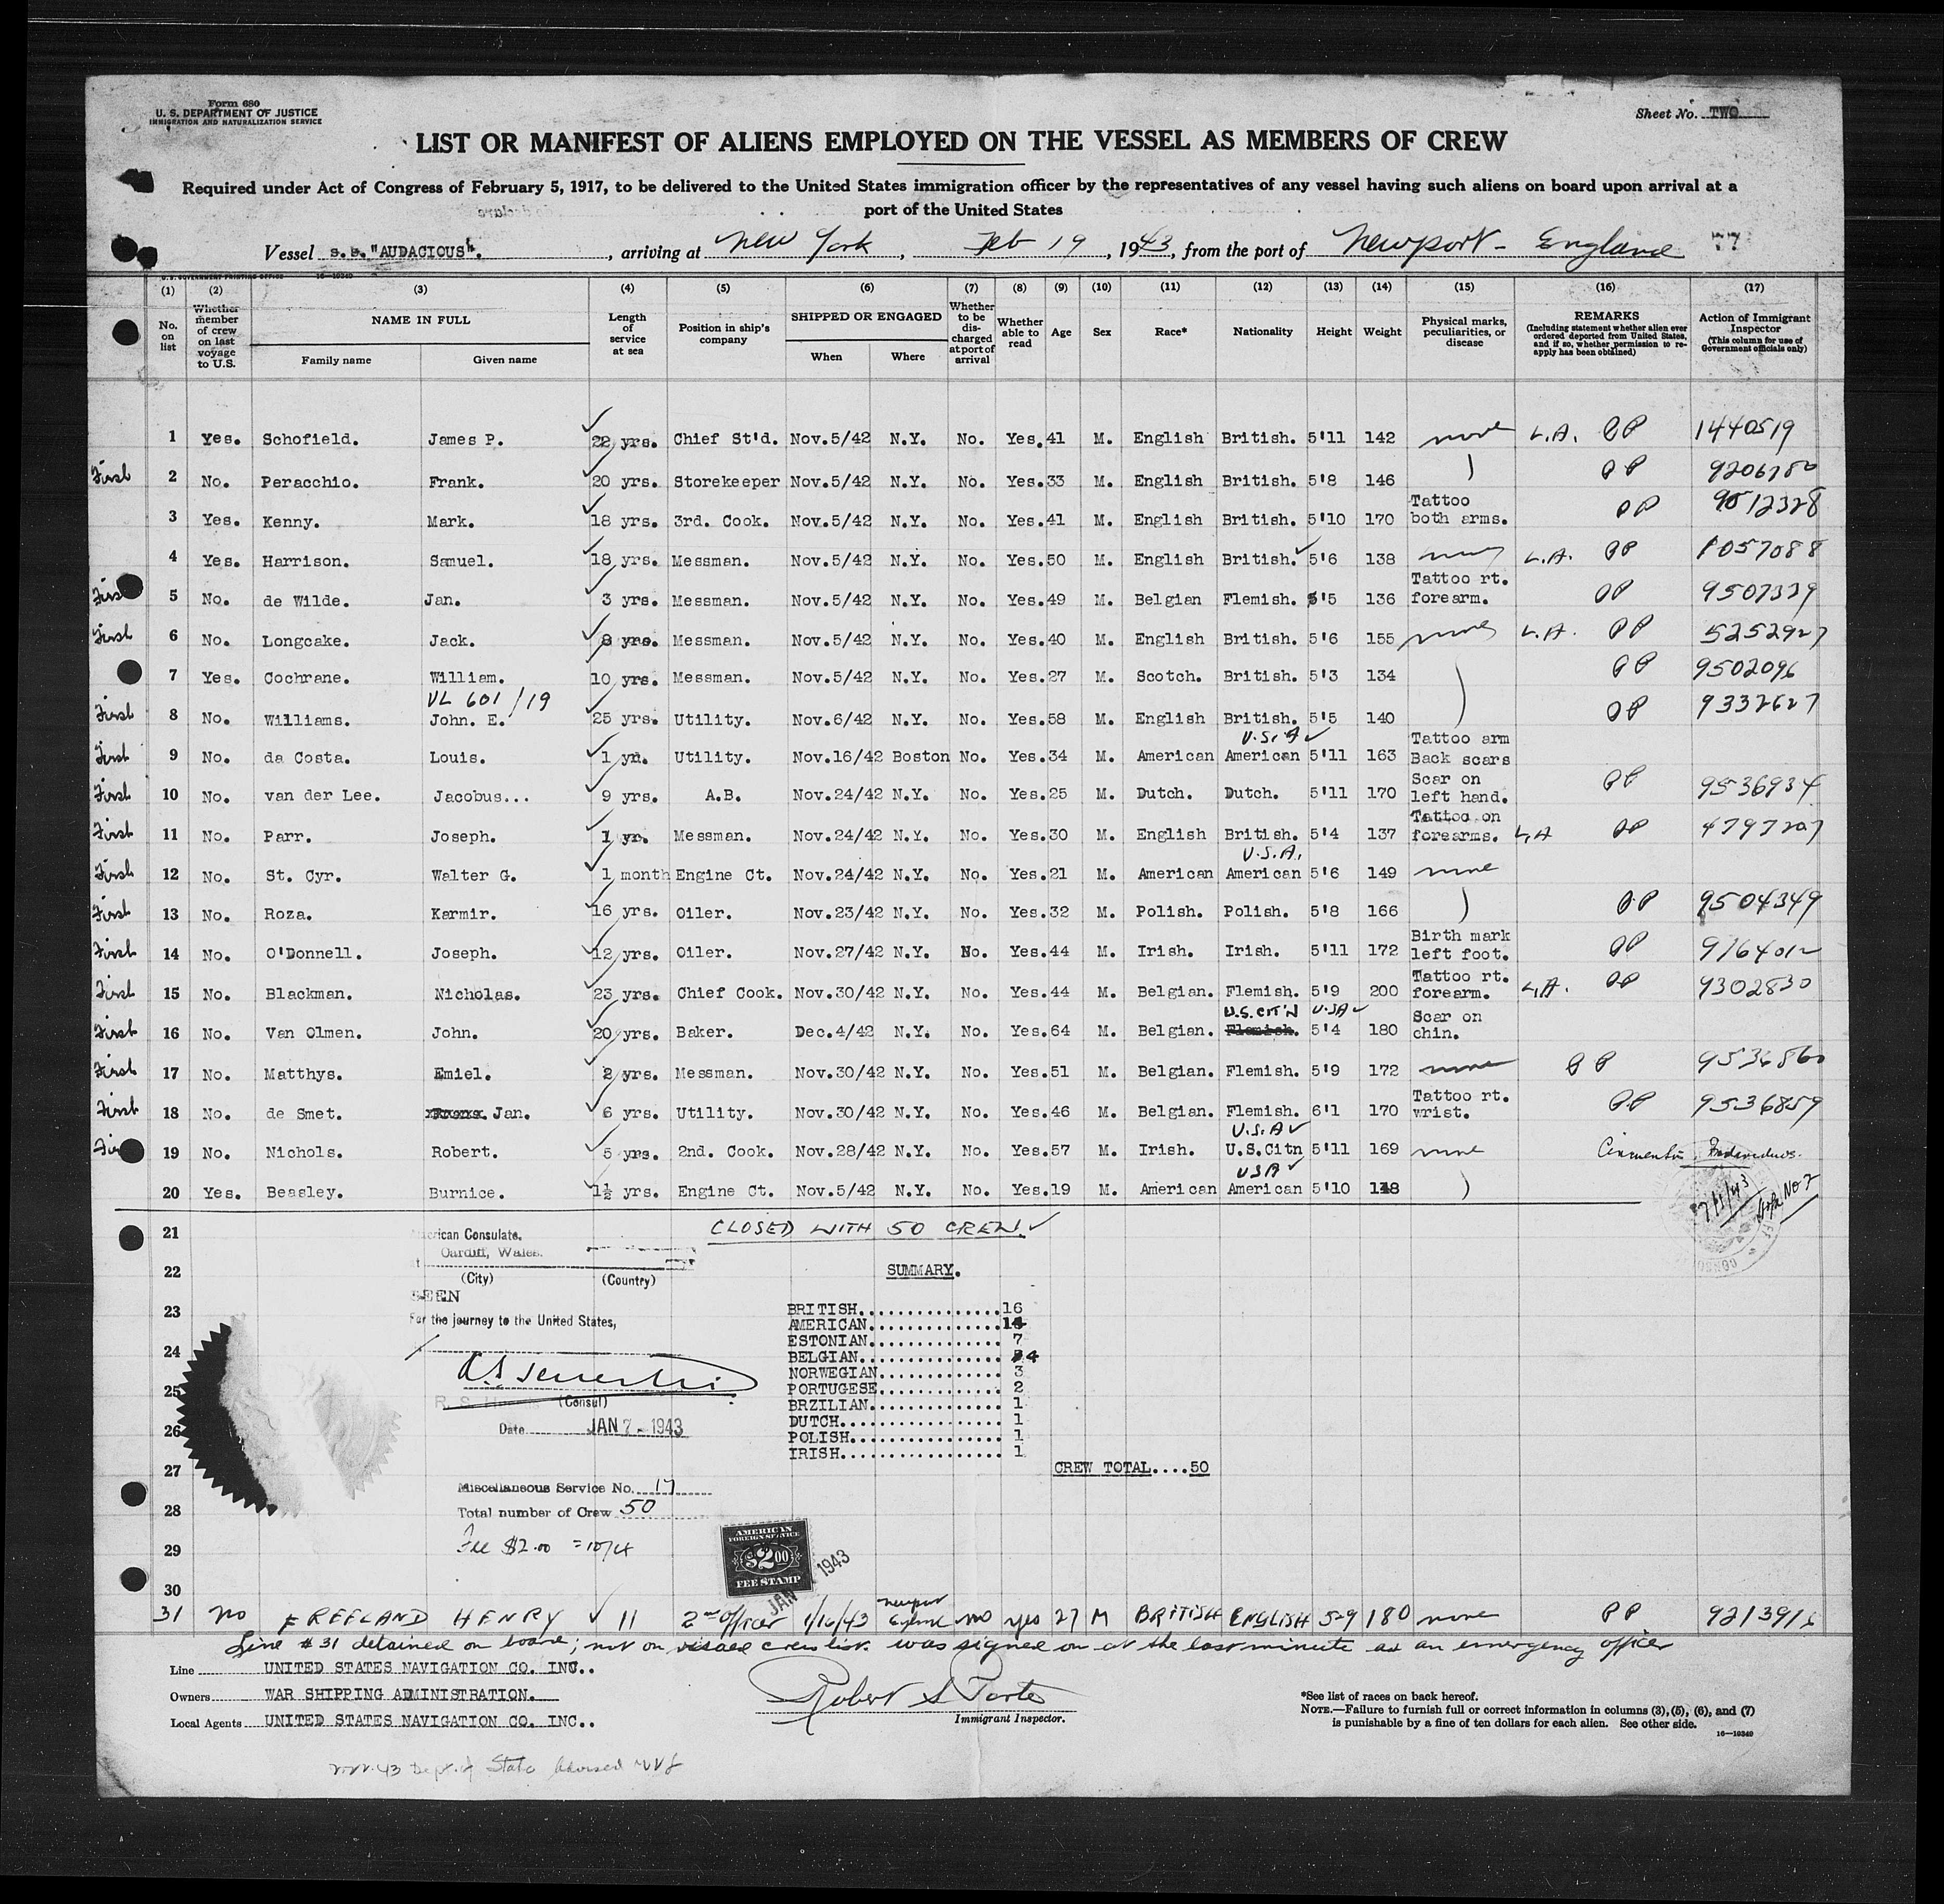 Form 680
U. S. DEPARTMENT OF JUSTICE
IMMIGRATION AND NATURALIZATION SERVICE
Sheet No. TWO
LIST OR MANIFEST OF ALIENS EMPLOYED ON THE VESSEL AS MEMBERS OF CREW
Required under Act of Congress of February 5, 1917, to be delivered to the United States immigration officer by the representatives of any vessel having such aliens on board upon arrival at a
port of the United States
Vessel s.s. "AUDACIOUS". , arriving at New York , Feb 19 , 1943, from the port of Newport - England 77
U. S. GOVERNMENT PRINTING OFFICE 16-19349
(1) (2) (3) (4) (5) (6) (7) (8) (9) (10) (11) (12) (13) (14) (15) (16) (17)
No. on list
Whether member of crew on last voyage to U.S.
NAME IN FULL
Family name Given name
Length of service at sea
Position in ship's company
SHIPPED OR ENGAGED
When Where
Whether to be discharged at port of arrival
Whether able to read
Age Sex Race* Nationality Height Weight
Physical marks, peculiarities, or disease
REMARKS
(Including statement whether alien ever ordered deported from United States, and if so, whether permission to reapply has been obtained)
Action of Immigrant Inspector
(This column for use of Government officials only)
1 Yes. Schofield. James P. 22 yrs. Chief St'd. Nov.5/42 N.Y. No. Yes. 41 M. English British. 5'11 142 none L.A. PP 1440519
First 2 No. Peracchio. Frank. 20 yrs. Storekeeper Nov.5/42 N.Y. No. Yes. 33 M. English British. 5'8 146 PP 9206780
3 Yes. Kenny. Mark. 18 yrs. 3rd. Cook. Nov.5/42 N.Y. No. Yes. 41 M. English British. 5'10 170 Tattoo both arms. PP 9512328
4 Yes. Harrison. Samuel. 18 yrs. Messman. Nov.5/42 N.Y. No. Yes. 50 M. English British. 5'6 138 none L.A. PP 1057088
First 5 No. de Wilde. Jan. 3 yrs. Messman. Nov.5/42 N.Y. No. Yes. 49 M. Belgian Flemish. 5'5 136 Tattoo rt. forearm. PP 9507339
First 6 No. Longcake. Jack. 8 yrs. Messman. Nov.5/42 N.Y. No. Yes. 40 M. English British. 5'6 155 none L.A. PP 5252927
7 Yes. Cochrane. William. 10 yrs. Messman. Nov.5/42 N.Y. No. Yes. 27 M. Scotch. British. 5'3 134 PP 9502096
VL 601/19
First 8 No. Williams. John. E. 25 yrs. Utility. Nov.6/42 N.Y. No. Yes. 58 M. English British. 5'5 140 PP 9332627
U.S.A
First 9 No. da Costa. Louis. 1 yr. Utility. Nov.16/42 Boston No. Yes. 34 M. American American 5'11 163 Tattoo arm Back scars
First 10 No. van der Lee. Jacobus... 9 yrs. A.B. Nov.24/42 N.Y. No. Yes. 25 M. Dutch. Dutch. 5'11 170 Scar on left hand. PP 9536934
First 11 No. Parr. Joseph. 1 yr. Messman. Nov.24/42 N.Y. No. Yes. 30 M. English British. 5'4 137 Tattoo on forearms. L.A PP 4797207
U.S.A.
First 12 No. St. Cyr. Walter G. 1 month Engine Ct. Nov.24/42 N.Y. No. Yes. 21 M. American American 5'6 149 none
First 13 No. Roza. Karmir. 16 yrs. Oiler. Nov.23/42 N.Y. No. Yes. 32 M. Polish. Polish. 5'8 166 PP 9504349
First 14 No. O'Donnell. Joseph. 12 yrs. Oiler. Nov.27/42 N.Y. No. Yes. 44 M. Irish. Irish. 5'11 172 Birth mark left foot. PP 9764012
First 15 No. Blackman. Nicholas. 23 yrs. Chief Cook. Nov.30/42 N.Y. No. Yes. 44 M. Belgian. Flemish. 5'9 200 Tattoo rt. forearm. L.A. PP 9302830
U.S. CIT'N USA
First 16 No. Van Olmen. John. 20 yrs. Baker. Dec.4/42 N.Y. No. Yes. 64 M. Belgian. Flemish. 5'4 180 Scar on chin.
First 17 No. Matthys. Emiel. 2 yrs. Messman. Nov.30/42 N.Y. No. Yes. 51 M. Belgian. Flemish. 5'9 172 none PP 9536860
First 18 No. de Smet. Jan. 6 yrs. Utility. Nov.30/42 N.Y. No. Yes. 46 M. Belgian. Flemish. 6'1 170 Tattoo rt. wrist. PP 9536859
U.S.A
First 19 No. Nichols. Robert. 5 yrs. 2nd. Cook. Nov.28/42 N.Y. No. Yes. 57 M. Irish. U.S.Citn 5'11 169 none
USA
20 Yes. Beasley. Burnice. 1½ yrs. Engine Ct. Nov.5/42 N.Y. No. Yes. 19 M. American American 5'10 148
7/1/43
21 American Consulate, CLOSED WITH 50 CREW.
Cardiff, Wales.
22 (City) (Country) SUMMARY.
SEEN
23 BRITISH...............16
For the journey to the United States,
AMERICAN...............14
ESTONIAN...............7
24 BELGIAN...............4
NORWEGIAN...............3
25 PORTUGESE...............2
(Consul) BRZILIAN...............1
DUTCH...............1
26 Date JAN 7 - 1943 POLISH...............1
IRISH...............1
27 CREW TOTAL....50
Miscellaneous Service No. 17
28 Total number of Crew 50
29 Fee $2.00 = 10/4
AMERICAN FOREIGN SERVICE $2.00 FEE STAMP
JAN 1943
30
31 No FREELAND HENRY 11 2nd Officer 1/16/43 Newport England no yes 27 M BRITISH ENGLISH 5-9 180 none PP 9213916
Line #31 detained on board; not on visaed crew list. was signed on at the last minute as an emergency officer
Line UNITED STATES NAVIGATION CO. INC..
Owners WAR SHIPPING ADMINISTRATION.
Local Agents UNITED STATES NAVIGATION CO. INC..
Robert S Porter
Immigrant Inspector.
*See list of races on back hereof.
NOTE.—Failure to furnish full or correct information in columns (3), (5), (6), and (7)
is punishable by a fine of ten dollars for each alien. See other side.
16—19349
43 Dept. of State Advised